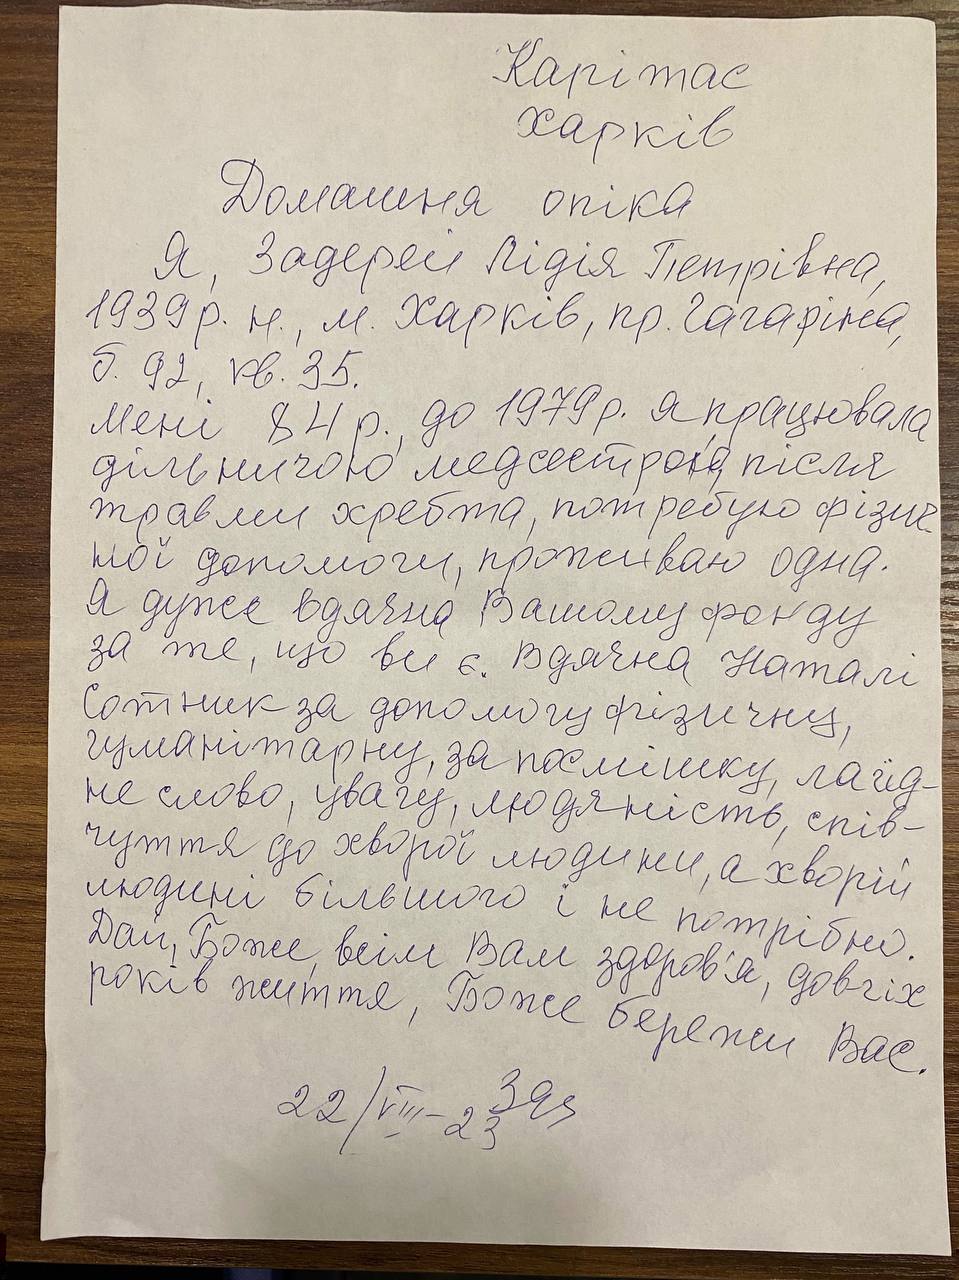 Карітас
Харків
Домашня опіка
Я, Задерей Лідія Петрівна,
1939 р. н., м. Харків, пр. Гагаріна,
б. 92, кв. 35.
Мені 84 р., до 1979 р. я працювала
дільничою медсестрою, після
травми хребта, потребую фізич
ної допомоги, проживаю одна.
Я дуже вдячна Вашому фонду
за те, що ви є. Вдячна Наталі
Сотник за допомогу фізичну,
гуманітарну, за посмішку, лагід-
не слово, увагу, людяність, спів-
чуття до хворої людини, а хворій
людині більшого і не потрібно.
Дай, Боже, всім Вам здоров'я, довгіх
років життя, Боже бережи Вас.
22/VIII-23